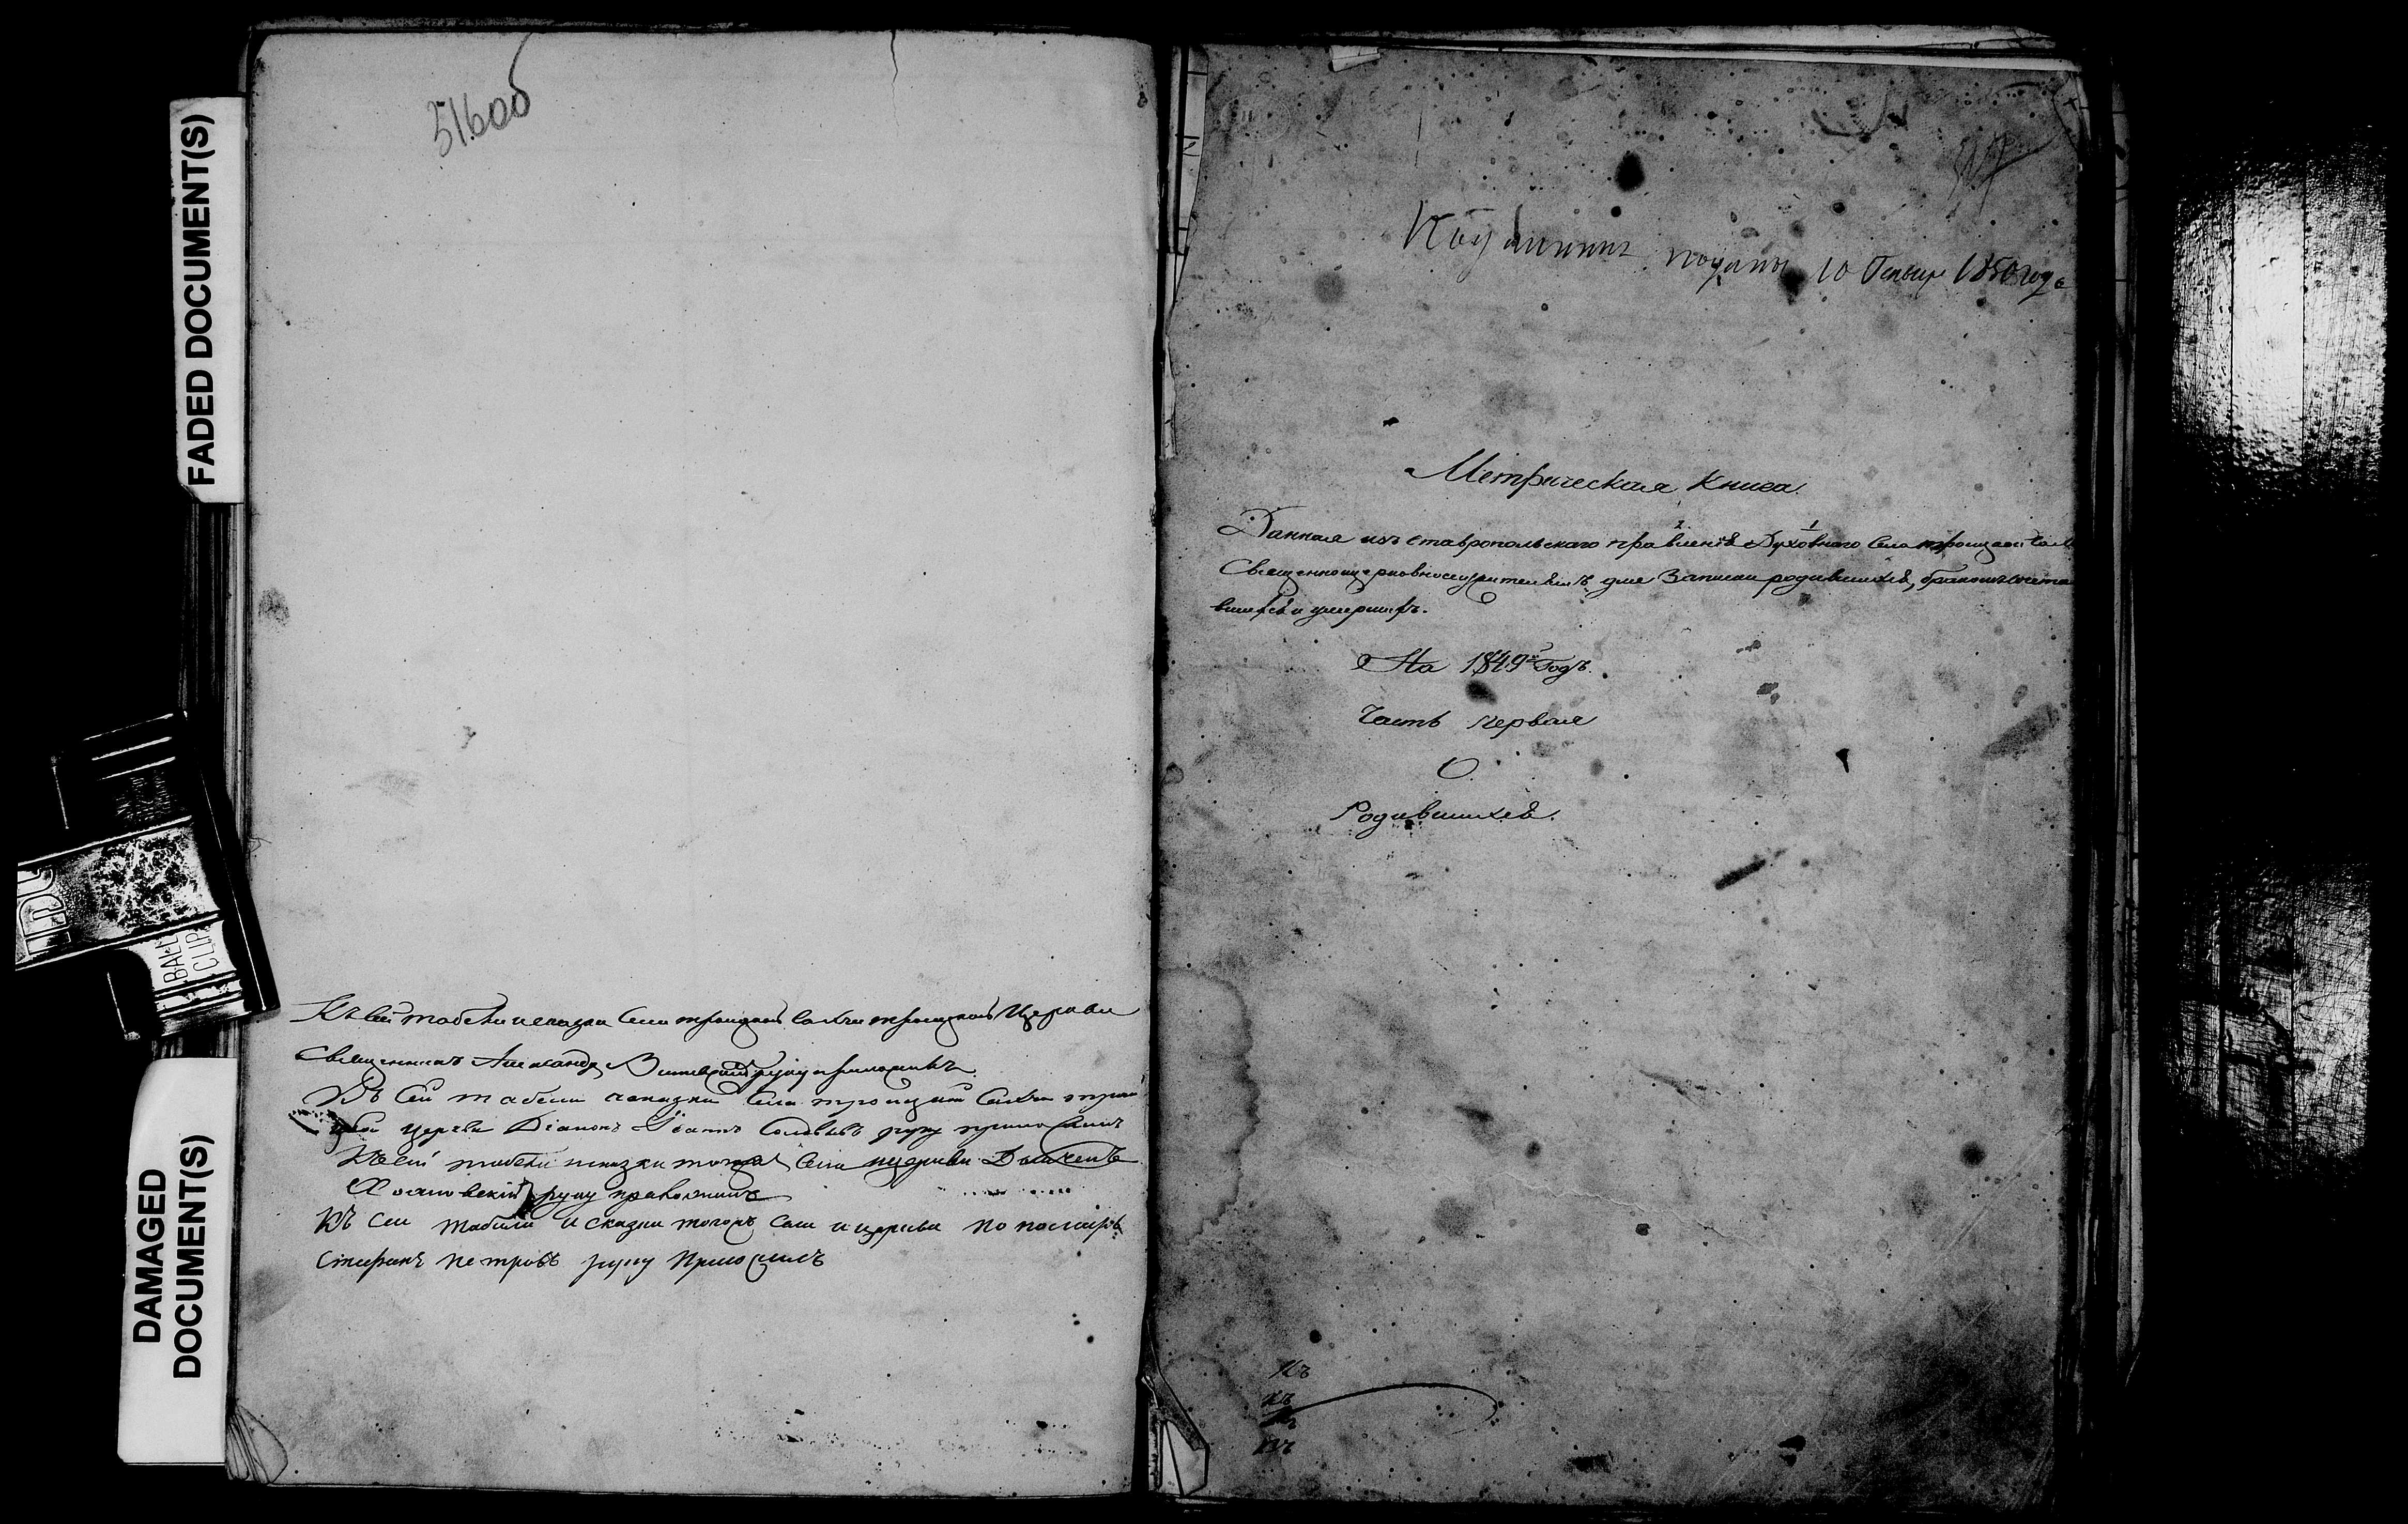 FADED DOCUMENT(S)
DAMAGED
DOCUMENT(S)
51600
Къ сей табели и сказки села троицкой солчи троицкой Церкви
Священникъ Александр руку приложилъ.
Къ сей табели и сказки села троицкой Солчи трои
цкой церкви Діаконъ Іоаннъ Соловьевъ руку приложилъ
Къ сей табели и сказки тогожъ села и церкви Дьячекъ
руку приложилъ
Къ сей табели и сказки тогожъ села и церкви пономарь
Стефанъ петровъ руку приложилъ
поданы 10 Генваря 1850 года
Метрическая Книга.
Данная изъ ставропольскаго правленія Духовнаго Села
Священноцерковнослужителямъ для Записки родившихся, бракомъ сочета
вшихся и умершихъ.
На 1849й Годъ.
Часть первая
О.
Родившихся.
Къ
Къ
Къ
Къ